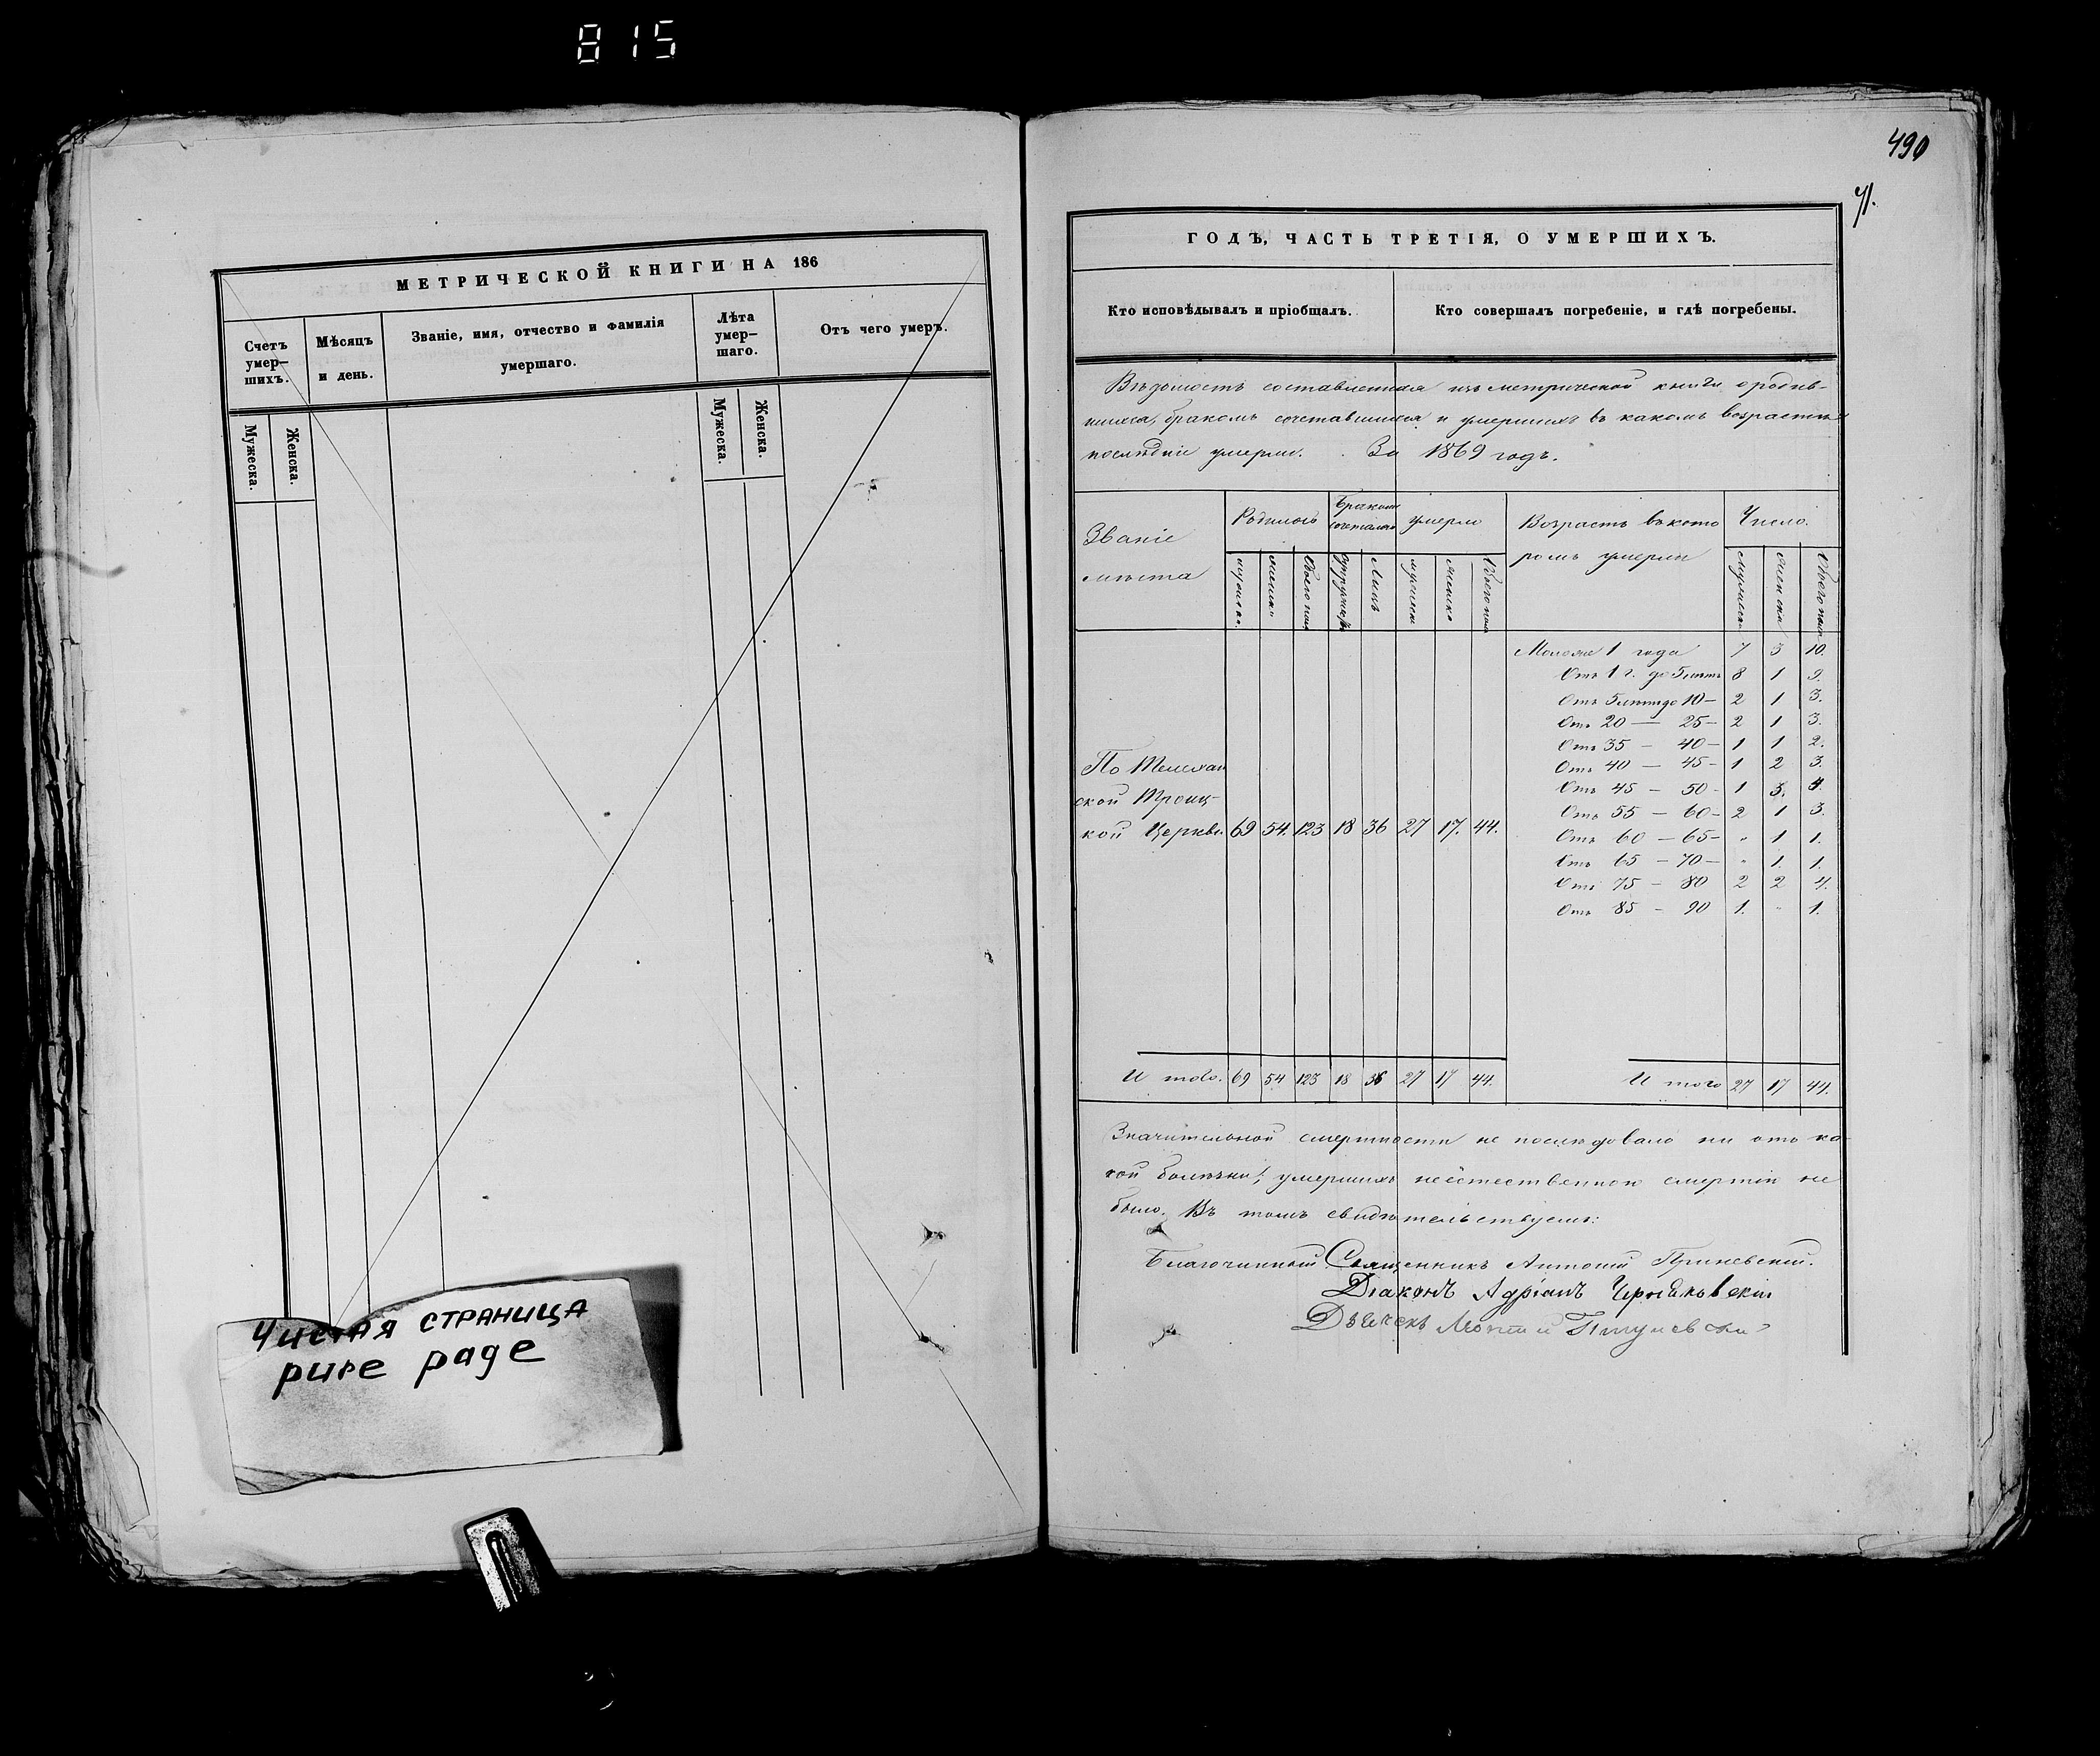 815
МЕТРИЧЕСКОЙ КНИГИ НА 186
Счетъ умер-шихъ.
Мѣсяцъ и день.
Званіе, имя, отчество и фамилія умершаго.
Лѣта умер-шаго.
Отъ чего умеръ.
Мужеска.
Женска.
Мужеска.
Женска.
Чистая страница
pure page
490
41.
ГОДЪ, ЧАСТЬ ТРЕТІЯ, О УМЕРШИХЪ.
Кто исповѣдывалъ и пріобщалъ.
Кто совершалъ погребеніе, и гдѣ погребены.
Вѣдомость составленная изъ метрической книги о родив-
шихся, бракомъ сочетавшихся и умершихъ въ какомъ возрастѣ
послѣдніе умерли. За 1869 годъ.
Званіе мѣста
Родилось
Бракомъ сочеталось
умерло
Возрастъ въ кото ромъ умерли
Число.
Менѣе 1 года 7 3 10.
Отъ 1 г. до 5 лѣтъ 8 1 9.
Отъ 5 лѣтъ до 10 - 2 1 3.
Отъ 20 — 25 - 2 1 3.
Отъ 35 - 40 - 1 1 2.
Отъ 40 — 45 - 1 2 3.
Отъ 45 - 50 - 1 3. 4.
Отъ 55 - 60 - 2 1 3.
Отъ 60 - 65 - " 1 1.
Отъ 65 - 70 - " 1. 1.
Отъ 75 - 80 2 2 4.
Отъ 85 - 90 1. " 1.
По Телехан
ской Троиц-
кой Церкви 69 54. 123 18 36 27 17. 44.
И того. 69 54 123 18 36 27 17 44.
И того 27 17 44.
Значительной смертности не послѣдовало ни отъ ка-
кой болѣзни, умершихъ неестественною смертію не
было. Въ томъ свидѣтельствуемъ:
Благочинный Священникъ Антоній
Діаконъ Адріанъ
Дьячекъ